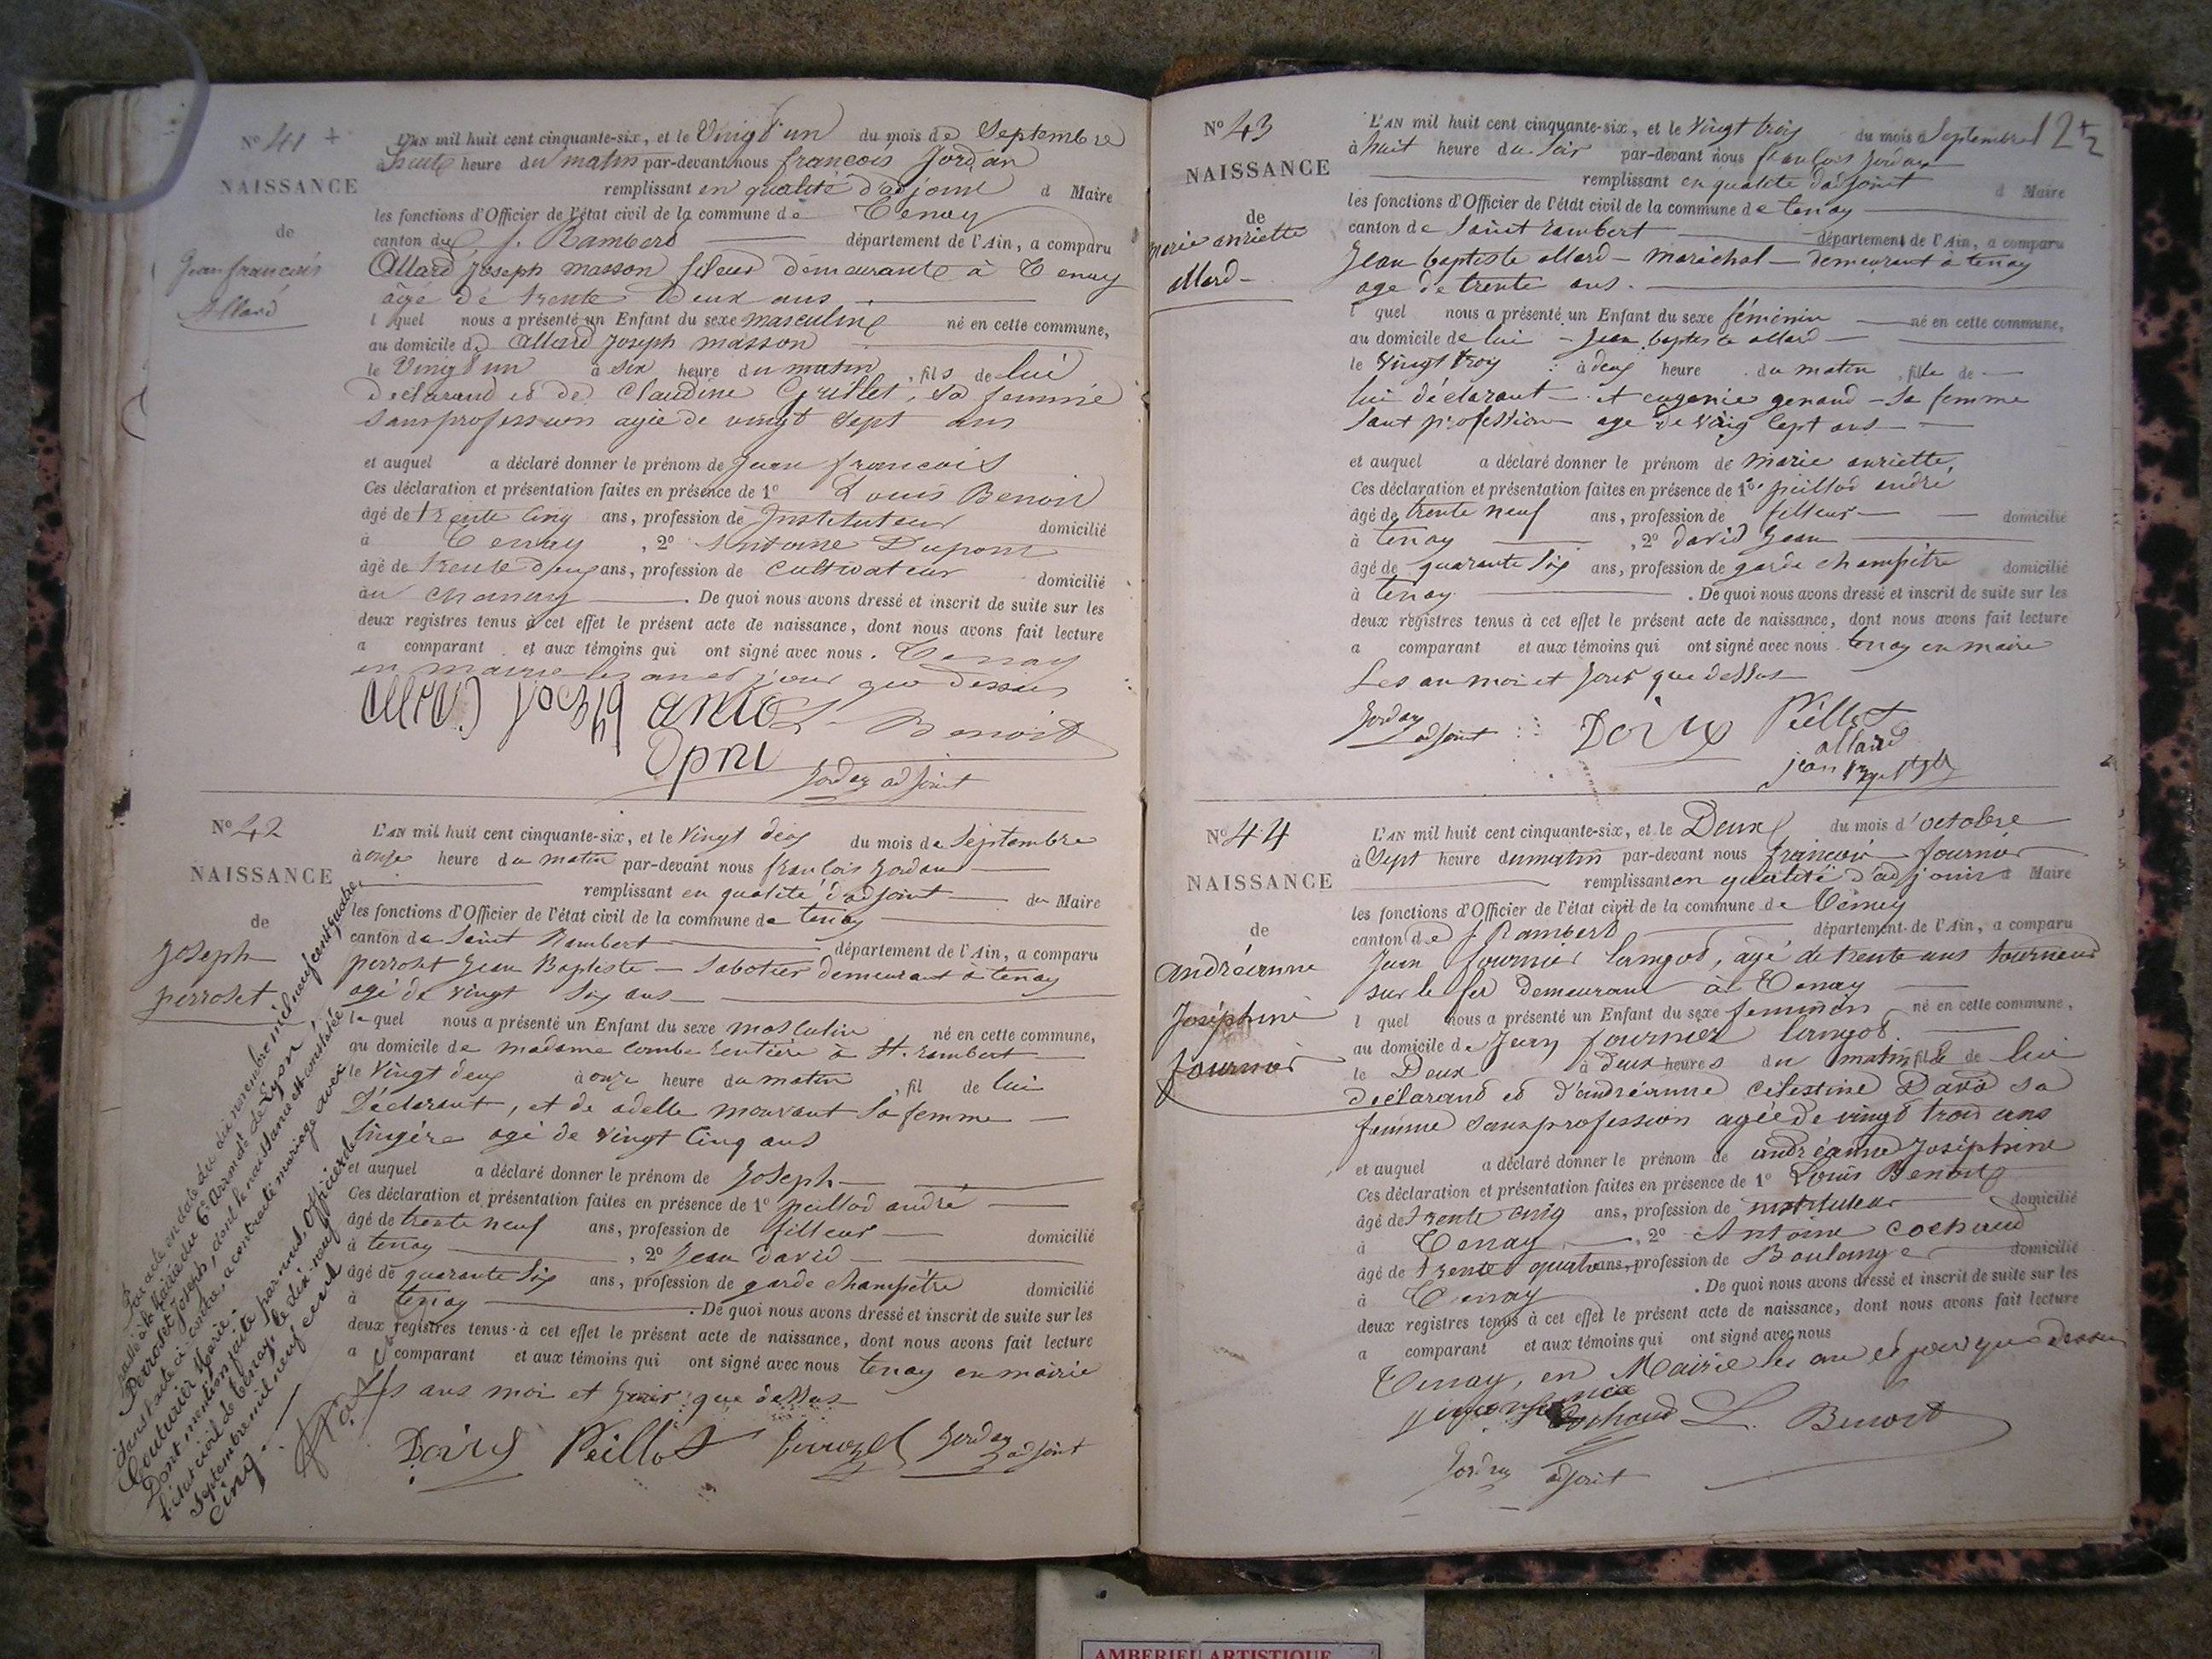 N° 41 +
NAISSANCE
de
Jean françois
Allard
L'AN mil huit cent cinquante-six, et le Vingt un du mois de Septembre
à heure du matin par-devant nous françois Jordan
remplissant en qualité d'adjoint d Maire
les fonctions d'Officier de l'état civil de la commune de Tenay
canton de S. Rambert département de l'Ain, a comparu
Allard Joseph masson fileur demeurante à Tenay
âgé de trente deux ans
l quel nous a présenté un Enfant du sexe masculine né en cette commune,
au domicile de Allard Joseph masson
le Vingt un à six heure du matin, fils de lui
déclarand et de Claudine Grillet, sa femme
sans profession agée de vingt sept ans
et auquel a déclaré donner le prénom de Jean françois
Ces déclaration et présentation faites en présence de 1° Louis Benoit
âgé de trente cinq ans, profession de Instituteur domicilié
à Tenay, 2° Antoine Dupont
âgé de trente deux ans, profession de cultivateur domicilié
au chanay. De quoi nous avons dressé et inscrit de suite sur les
deux registres tenus à cet effet le présent acte de naissance, dont nous avons fait lecture
a comparant et aux témoins qui ont signé avec nous. Tenay
en mairie les an et jour que dessus
L. Benoit
Jordan adjoint
N° 42
NAISSANCE
de
Joseph
perroset
L'AN mil huit cent cinquante-six, et le vingt deux du mois de Septembre
à onze heure du matin par-devant nous françois Jordan
remplissant en qualité d'adjoint du Maire
les fonctions d'Officier de l'état civil de la commune de tenay
canton de Saint Rambert département de l'Ain, a comparu
perroset Jean Baptiste - Sabotier demeurant à tenay
agé de vingt six ans
le quel nous a présenté un Enfant du sexe masculin né en cette commune,
au domicile de madame Combe rentière à St. rambert
le vingt deux à onze heure du matin, fil de lui
Déclarant, et de adelle mouvant sa femme
lingére agé de vingt cinq ans
et auquel a déclaré donner le prénom de Joseph
Ces déclaration et présentation faites en présence de 1° peillod andré
âgé de trente neuf ans, profession de filleur domicilié
à tenay, 2° Jean david
âgé de quarante six ans, profession de garde champêtre domicilié
à tenay. De quoi nous avons dressé et inscrit de suite sur les
deux registres tenus à cet effet le présent acte de naissance, dont nous avons fait lecture
a comparant et aux témoins qui ont signé avec nous tenay en mairie
les ans moi et jour que dessus
Peillot Perrozet Jordan adjoint
Par acte en date du dix novembre mil neuf cent quatre,
passé à la Mairie du 6e Arrondt de Lyon,
Perroset Joseph, dont la naissance est constatée
dans l'acte ci-contre, a contracté mariage avec
Couturier Marie.
Dont mention faite par nous, officier de
l'état civil de Tenay, le dix neuf
septembre mil neuf cent
cinq.
N° 43
NAISSANCE
de
marie anriette
allard
12
L'AN mil huit cent cinquante-six, et le vingt trois du mois d Septembre
à huit heure du soir par-devant nous françois Jordan
remplissant en qualité d'adjoint d Maire
les fonctions d'Officier de l'état civil de la commune de tenay
canton de Saint rambert département de l'Ain, a comparu
Jean baptiste allard - maréchal - demeurant à tenay
age de trente ans.
l quel nous a présenté un Enfant du sexe féminin né en cette commune,
au domicile de lui - Jean baptiste allard
le vingt trois à deux heure du matin, fille de
lui déclarant - et eugenie genand - sa femme
sant profession age de ving sept ans
et auquel a déclaré donner le prénom de marie anriette,
Ces déclaration et présentation faites en présence de 1° peillod andre
âgé de trente neuf ans, profession de filleur domicilié
à tenay, 2° david Jean
âgé de quarante six ans, profession de garde champêtre domicilié
à tenay. De quoi nous avons dressé et inscrit de suite sur les
deux registres tenus à cet effet le présent acte de naissance, dont nous avons fait lecture
a comparant et aux témoins qui ont signé avec nous tenay en maire
Les an moi et jour que dessus
Jordan adjoint Peillot
allard
jean
N° 44
NAISSANCE
de
andréanne
Joséphine
fournier
L'AN mil huit cent cinquante-six, et le Deux du mois d'octobre
à Sept heure du matin par-devant nous françois fournier
remplissant en qualité d'adjoint d Maire
les fonctions d'Officier de l'état civil de la commune de Tenay
canton de S Rambert département de l'Ain, a comparu
Jean fournier Langod, agé de trente ans tourneur
sur le fer demeurant à Tenay
l quel nous a présenté un Enfant du sexe feminin né en cette commune,
au domicile de Jean fournier Langod
le Deux à deux heures du matin, fille de lui
déclarand et d'andréanne celestine David sa
femme sans profession agée de vingt trois ans
et auquel a déclaré donner le prénom de andréanne Joséphine
Ces déclaration et présentation faites en présence de 1° Louis Benoit
âgé de trente cinq ans, profession de instituteur domicilié
à Tenay, 2° Antoine Cochaud
âgé de trente quatre ans, profession de Boulanger domicilié
à Tenay. De quoi nous avons dressé et inscrit de suite sur les
deux registres tenus à cet effet le présent acte de naissance, dont nous avons fait lecture
a comparant et aux témoins qui ont signé avec nous
Tenay, en Mairie les an et jour que dessus
Cochaud L. Benoit
Jordan adjoint
AMBERIEU ARTISTIQUE